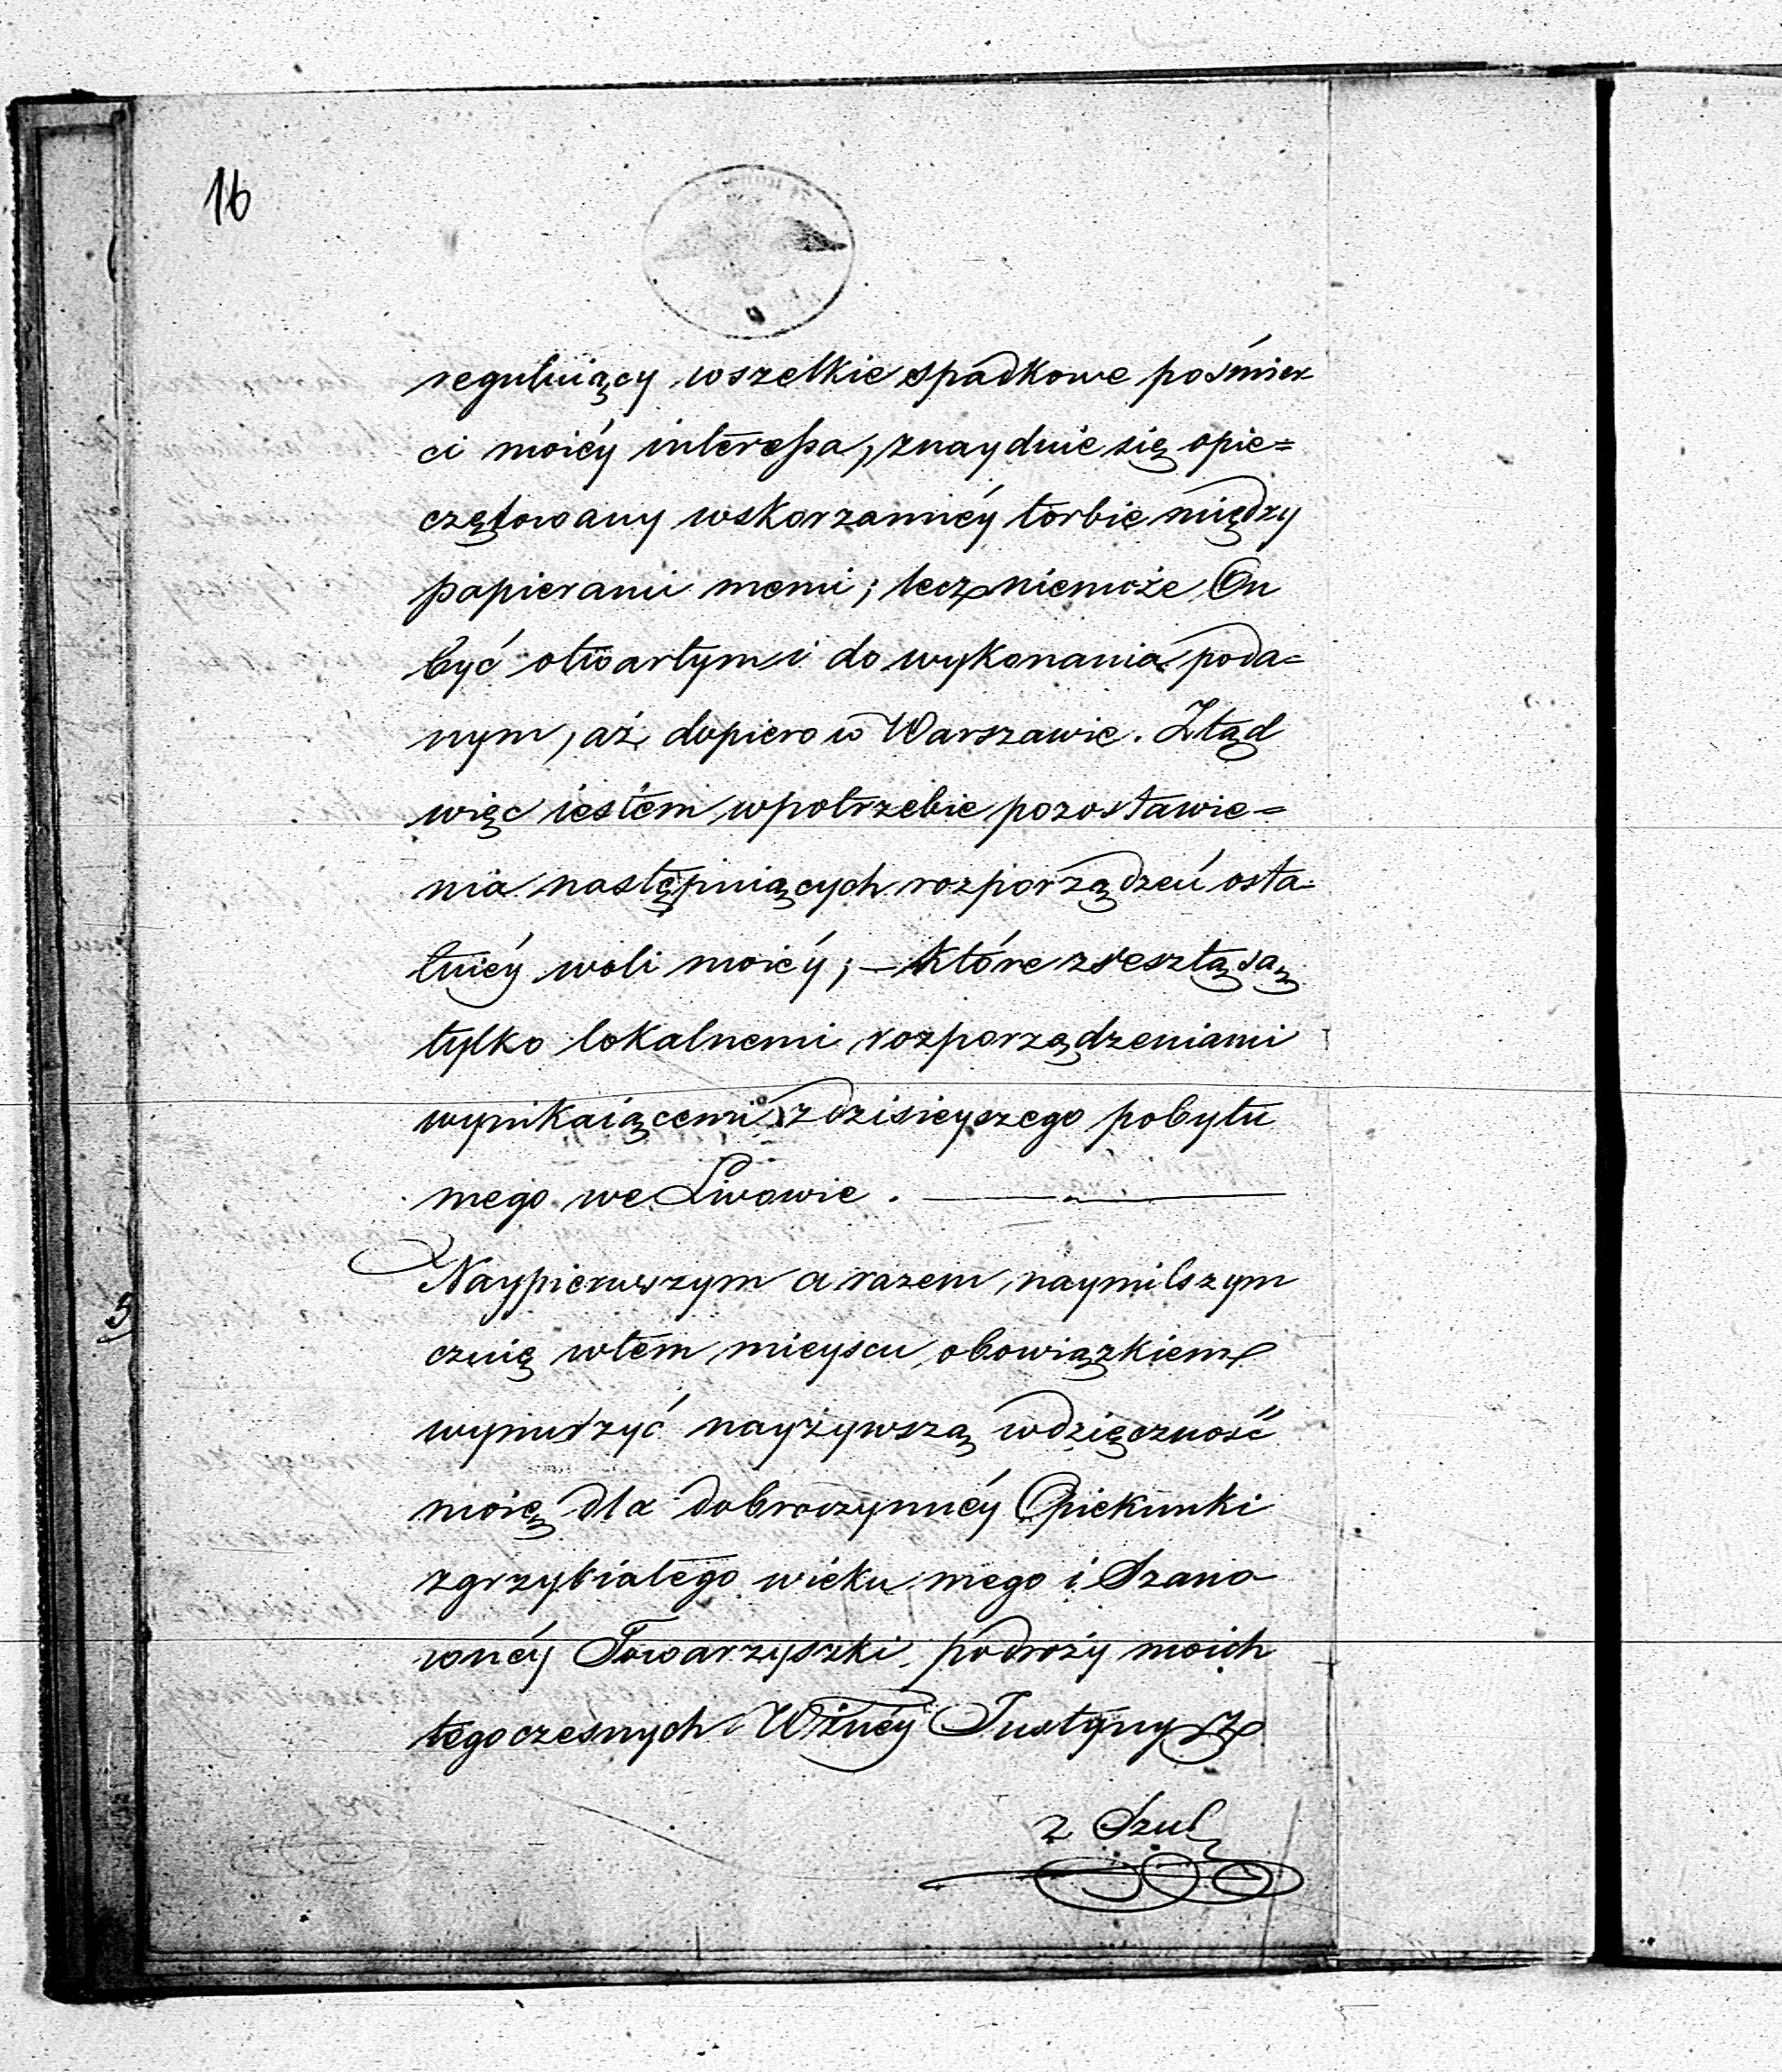 16
reguluiący wszelkie spadkowe pośmier
ci moiéy interessa, znayduie się opie=
czętowany wskorzannéy torbie między
papierami memi; lecz niemoże On
być otwartym i do wykonania poda=
nym, aż dopiero w Warszawie. Ztąd
więc iestem wpotrzebie pozostawie=
nia następuiących rozporządzeń osta=
tniéy woli moiéy; – które zresztą są
tylko lokalnemi rozporządzeniami
wynikaiącemi z dzisieyszego pobytu
mego we Lwowie. ——
Naypierwszym a razem naymilszym
czuię wtem mieyscu obowiązkiem
wynurzyć nayżywszą wdzięczność
moię dla dobroczynnéy Opiekunki
zgrzybiałego wieku mego i Szano
wnéy Towarzyszki podroży moich
tegoczesnych Wżnéy Justyny
z Szul